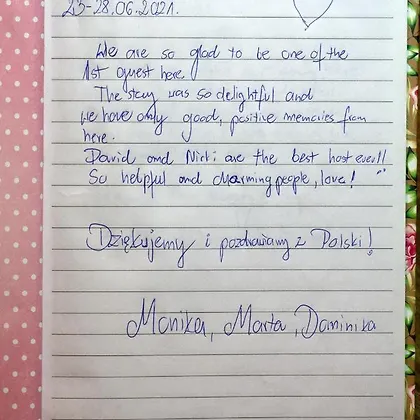 23-28.06.2021.
We are so glad to be one of the
1st guest here
The stay was so delightful and
we have only good, positive memories from
here.
David and Nicki are the best host ever!!
So helpful and charming people, love! ''
Dziękujemy i pozdrawiamy z Polski!
Monika, Marta, Dominika